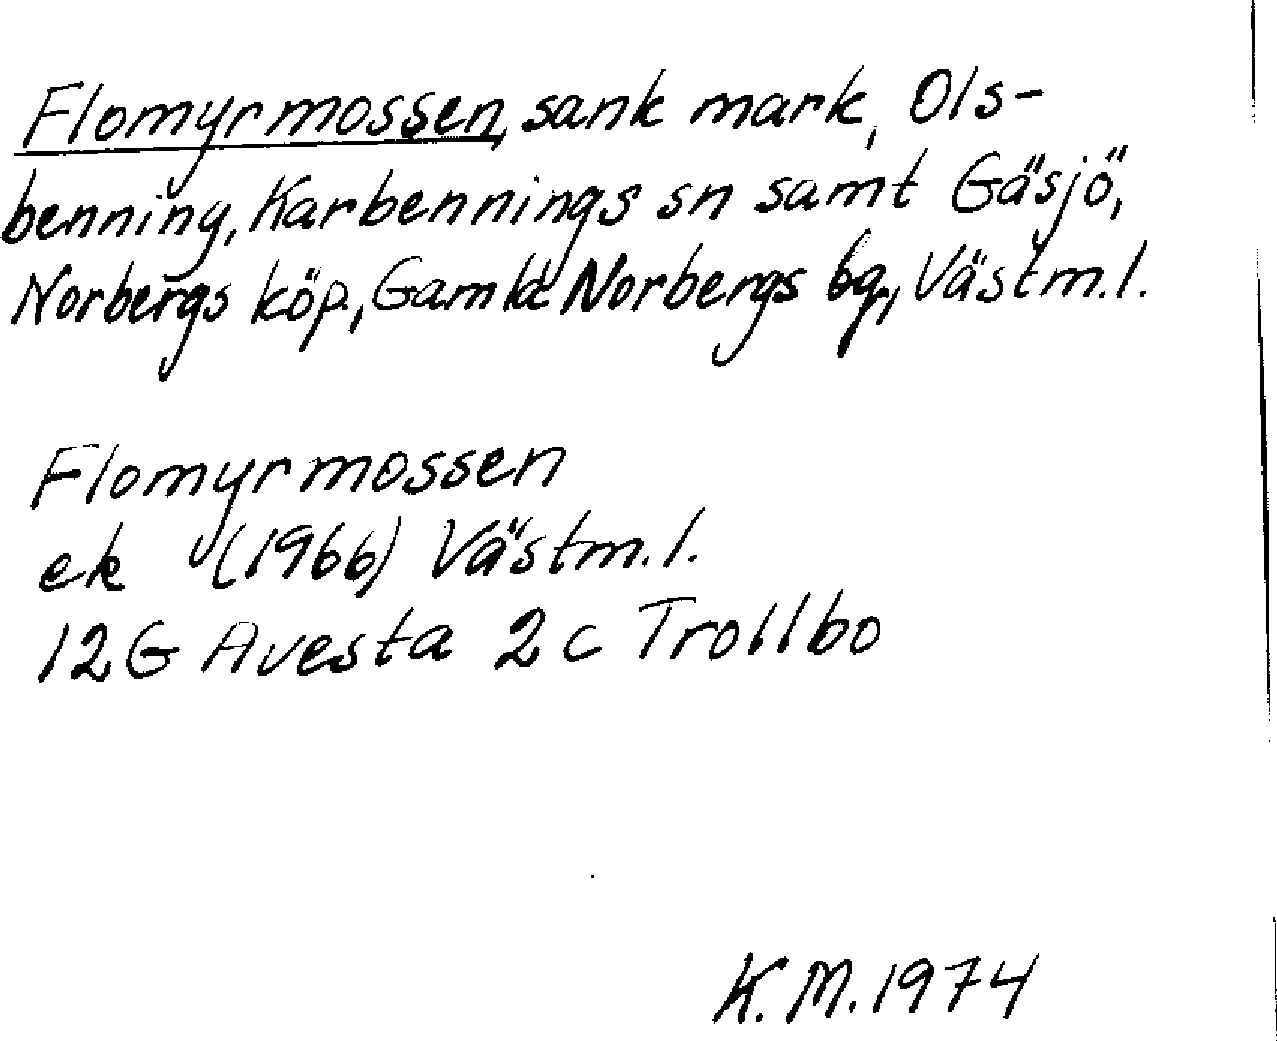 Flomyrmossen, sank mark, Ols-
benning, Karbennings sn samt Gäsjö,
Norbergs köp., Gamla Norbergs bg, Västm.l.
Flomyrmossen
ek (1966) Västm.l.
12G Avesta 2c Trollbo
K.M.1974